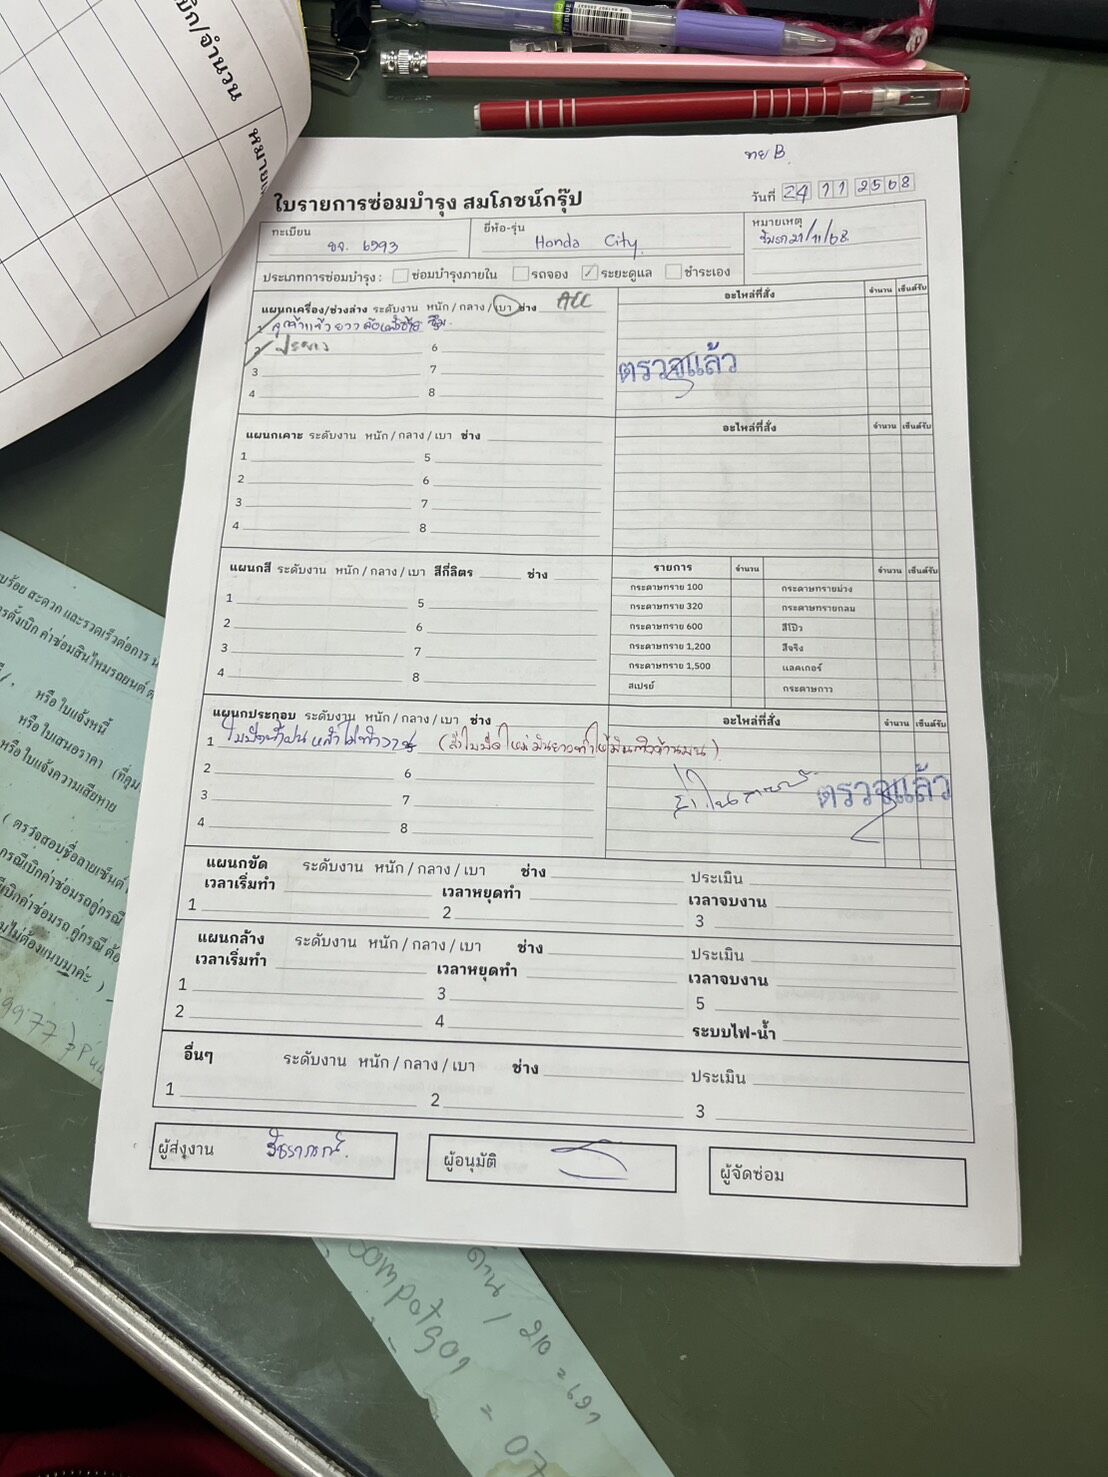 เบิก/จำนวน
หมายเ
ทย B.
ใบรายการซ่อมบำรุง สมโภชน์กรุ๊ป
วันที่ 24 11 2568
ทะเบียน ขจ. 6593
ยี่ห้อ-รุ่น Honda City
หมายเหตุ
21/11/68
ประเภทการซ่อมบำรุง : ซ่อมบำรุงภายใน รถจอง ✓ ระยะดูแล ชำระเอง
แผนกเครื่อง/ช่วงล่าง ระดับงาน หนัก / กลาง / เบา ช่าง ACC
อะไหล่ที่สั่ง จำนวน เซ็นต์รับ
1
2 6
3 7
4 8
ตรวจแล้ว
แผนกเคาะ ระดับงาน หนัก / กลาง / เบา ช่าง
อะไหล่ที่สั่ง จำนวน เซ็นต์รับ
1 5
2 6
3 7
4 8
แผนกสี ระดับงาน หนัก / กลาง / เบา สีกี่ลิตร ช่าง
รายการ จำนวน จำนวน เซ็นต์รับ
1 5
2 6
3 7
4 8
กระดาษทราย 100 กระดาษทรายม่วง
กระดาษทราย 320 กระดาษทรายกลม
กระดาษทราย 600 สีโป๊ว
กระดาษทราย 1,200 สีจริง
กระดาษทราย 1,500 แลคเกอร์
สเปรย์ กระดาษกาว
แผนกประกอบ ระดับงาน หนัก / กลาง / เบา ช่าง
อะไหล่ที่สั่ง จำนวน เซ็นต์รับ
1 ใบปัดน้ำฝน
2 6
3 7
4 8
ตรวจแล้ว
แผนกขัด ระดับงาน หนัก / กลาง / เบา ช่าง ประเมิน
เวลาเริ่มทำ เวลาหยุดทำ เวลาจบงาน
1 2 3
แผนกล้าง ระดับงาน หนัก / กลาง / เบา ช่าง ประเมิน
เวลาเริ่มทำ เวลาหยุดทำ เวลาจบงาน
1 3 5
2 4 ระบบไฟ-น้ำ
อื่นๆ ระดับงาน หนัก / กลาง / เบา ช่าง ประเมิน
1 2 3
ผู้ส่งงาน
ผู้อนุมัติ
ผู้จัดซ่อม
บร้อย สะดวก และรวดเร็วต่อการ
ารตั้งเบิก ค่าซ่อมสินไหมรถยนต์
หรือ ใบแจ้งหนี้
หรือ ใบเสนอราคา
หรือ ใบแจ้งความเสียหาย
( ตรวจสอบชื่อลายเซ็นต์
กรณีเบิกค่าซ่อมรถคู่กรณี
มไม่ต้องแนบมาค่ะ )